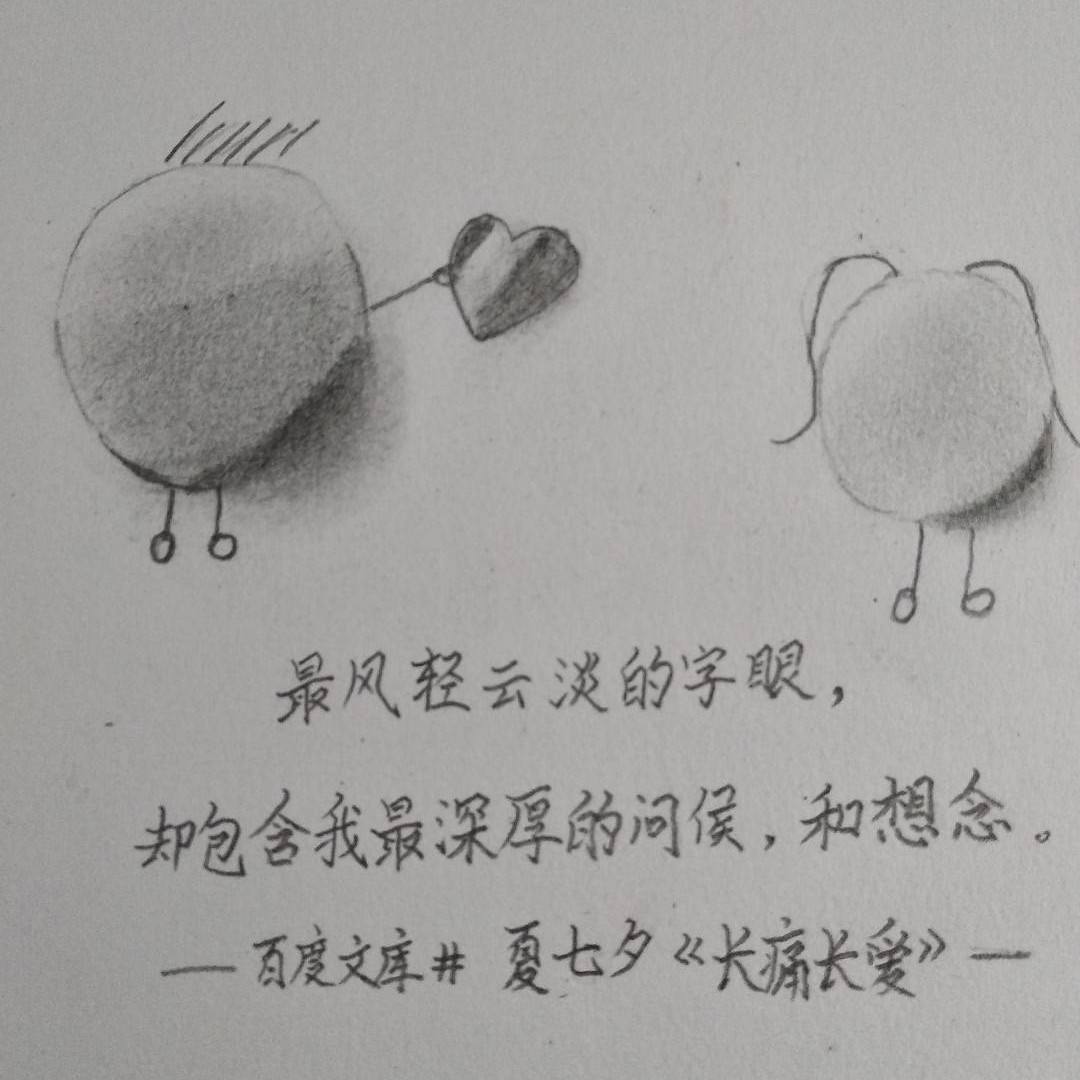 最风轻云淡的字眼，
却包含我最深厚的问侯，和想念。
—百度文库# 夏七夕《长痛长爱》—